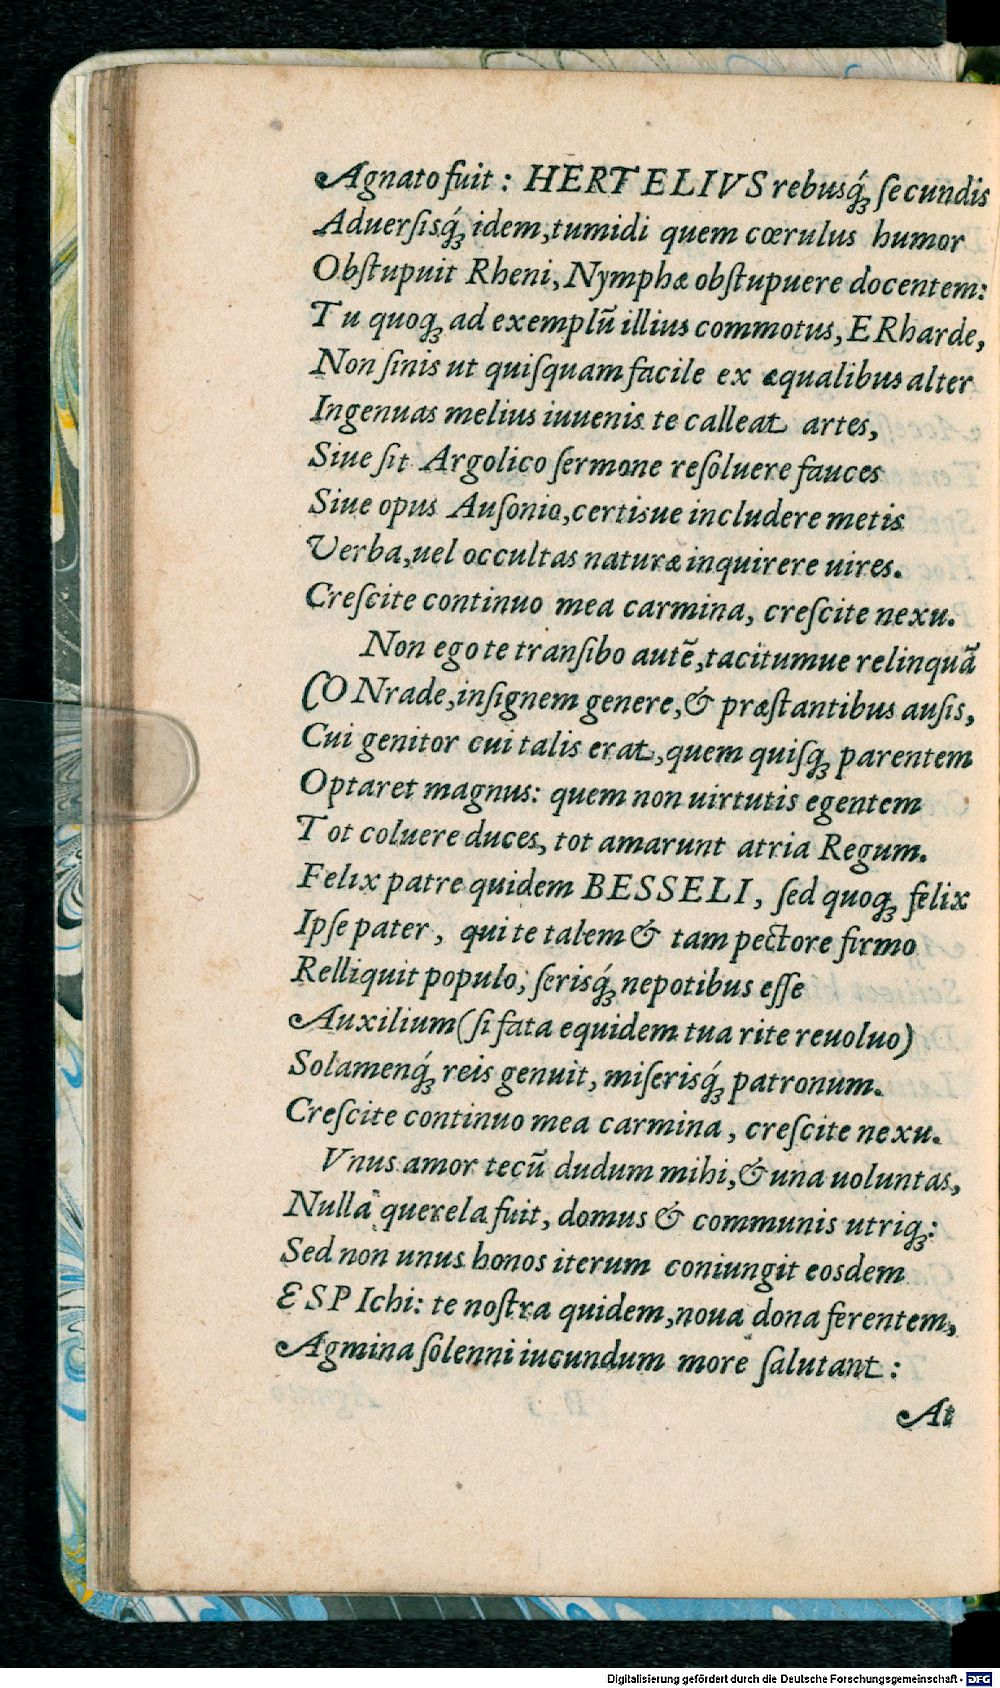 Agnato fuit: HERTELIVS rebusq́ꝫ ſecundis
Aduerſisq́ꝫ idem, tumidi quem cœrulus humor
Obſtupuit Rheni, Nymphæ obſtupuere docentem:
Tu quoqꝫ ad exemplũ illius commotus, ERharde,
Non ſinis ut quiſquam facile ex æqualibus alter
Ingenuas melius iuuenis te calleat artes,
Siue ſit Argolico ſermone reſoluere fauces
Siue opus Auſonio, certisue includere metis
Verba, uel occultas naturæ inquirere uires.
Creſcite continuo mea carmina, creſcite nexu.
Non ego te tranſibo autẽ, tacitumue relinquã
CONrade, inſignem genere, & præſtantibus auſis,
Cui genitor cui talis erat, quem quiſqꝫ parentem
Optaret magnus: quem non uirtutis egentem
Tot coluere duces, tot amarunt atria Regum.
Felix patre quidem BESSELI, ſed quoqꝫ felix
Ipſe pater, qui te talem & tam pectore firmo
Relliquit populo, ſerisq́ꝫ nepotibus eſſe
Auxilium (ſi fata equidem tua rite reuoluo)
Solamenq́ꝫ reis genuit, miſerisq́ꝫ patronum.
Creſcite continuo mea carmina, creſcite nexu.
Vnus amor tecũ dudum mihi, & una uoluntas,
Nulla querela fuit, domus & communis utriqꝫ:
Sed non unus honos iterum coniungit eosdem
ESPIchi: te noſtra quidem, noua dona ferentem,
Agmina ſolenni iucundum more ſalutant:
At
Digitalisierung gefördert durch die Deutsche Forschungsgemeinschaft - DFG